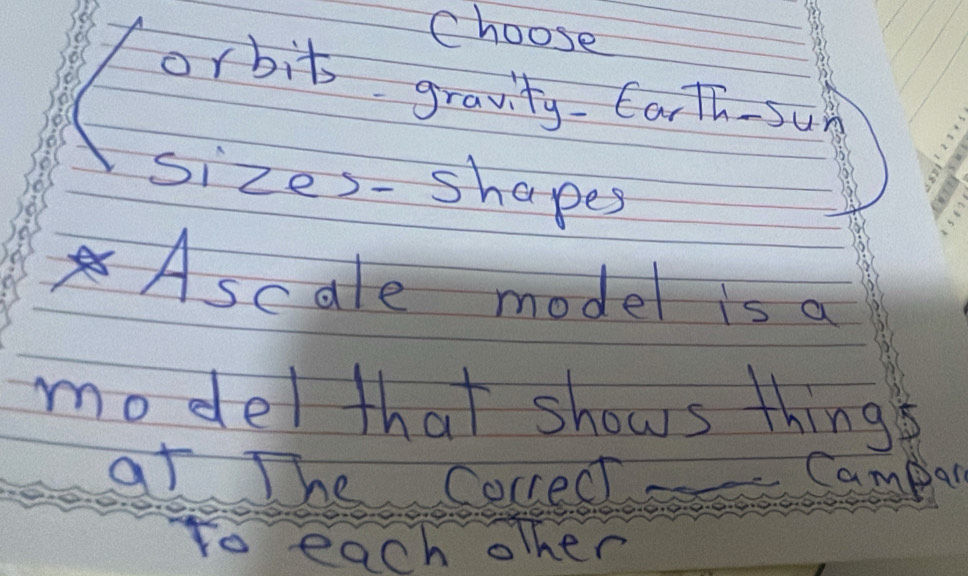 Choose
(orbits - gravity - Earth - Sun
sizes - shapes)
* A scale model is a
model that shows things
at The Correct ___ Campare
To each other